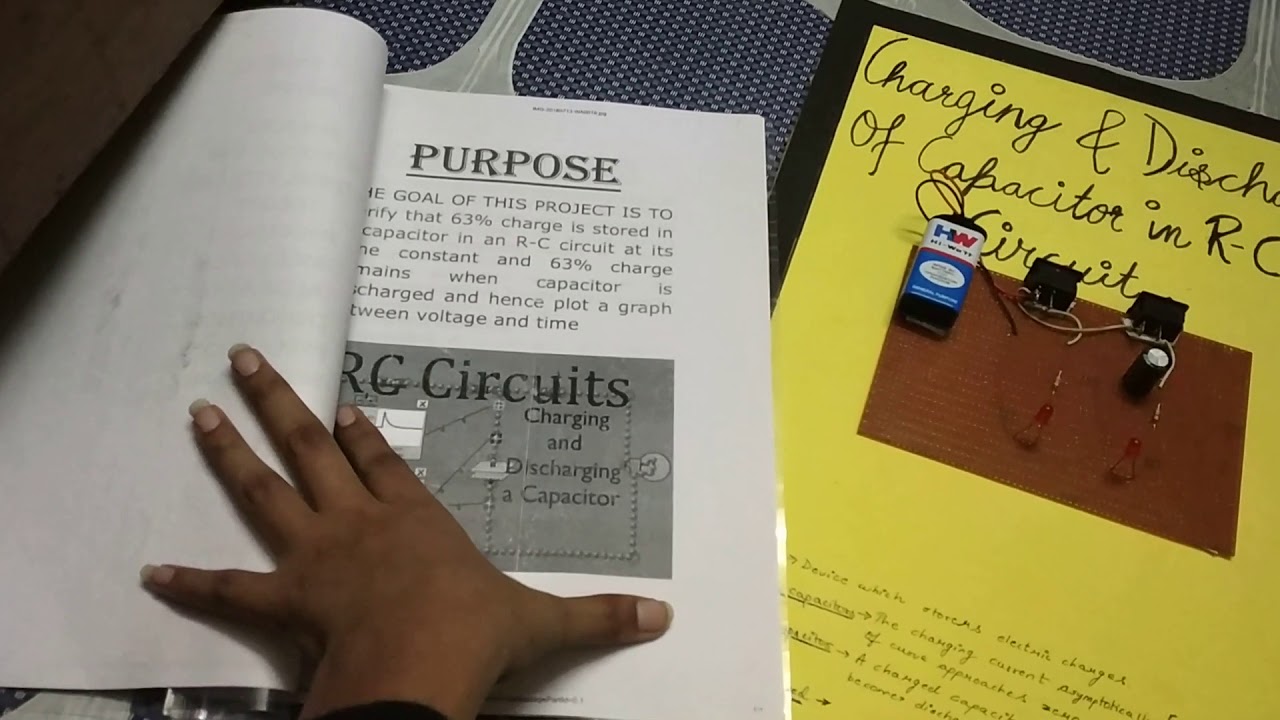 PURPOSE
HE GOAL OF THIS PROJECT IS TO
rify that 63% charge is stored in
capacitor in an R-C circuit at its
e constant and 63% charge
mains when capacitor is
scharged and hence plot a graph
tween voltage and time
RC Circuits
Charging
and
Discharging
a Capacitor
Charging & Discha
Of Capacitor in R-C
Circuit
HW
HI-WATT
GENERAL PURPOSE
→ Device which storers electric charges.
capacitors → The charging current asymptotically
of curve approaches zero
→ A charged capacit
becomes disch